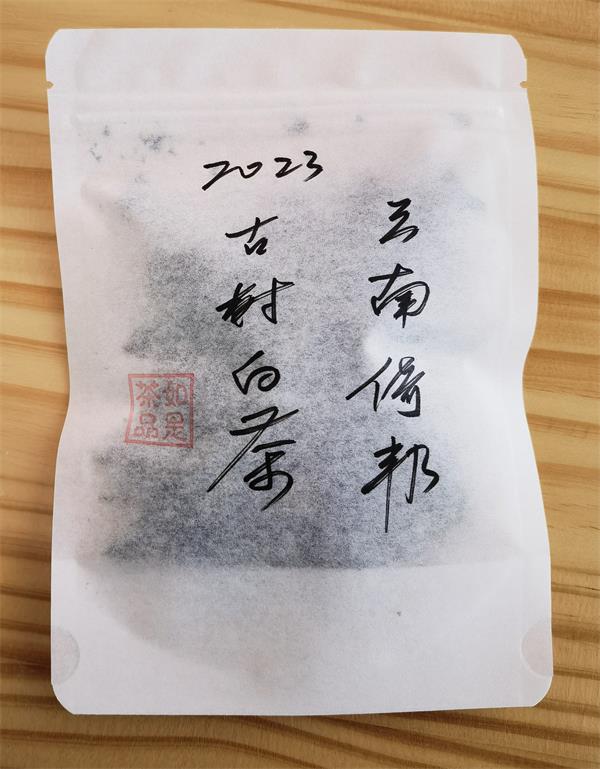 云南倚邦
2023
古树白茶
如是茶品